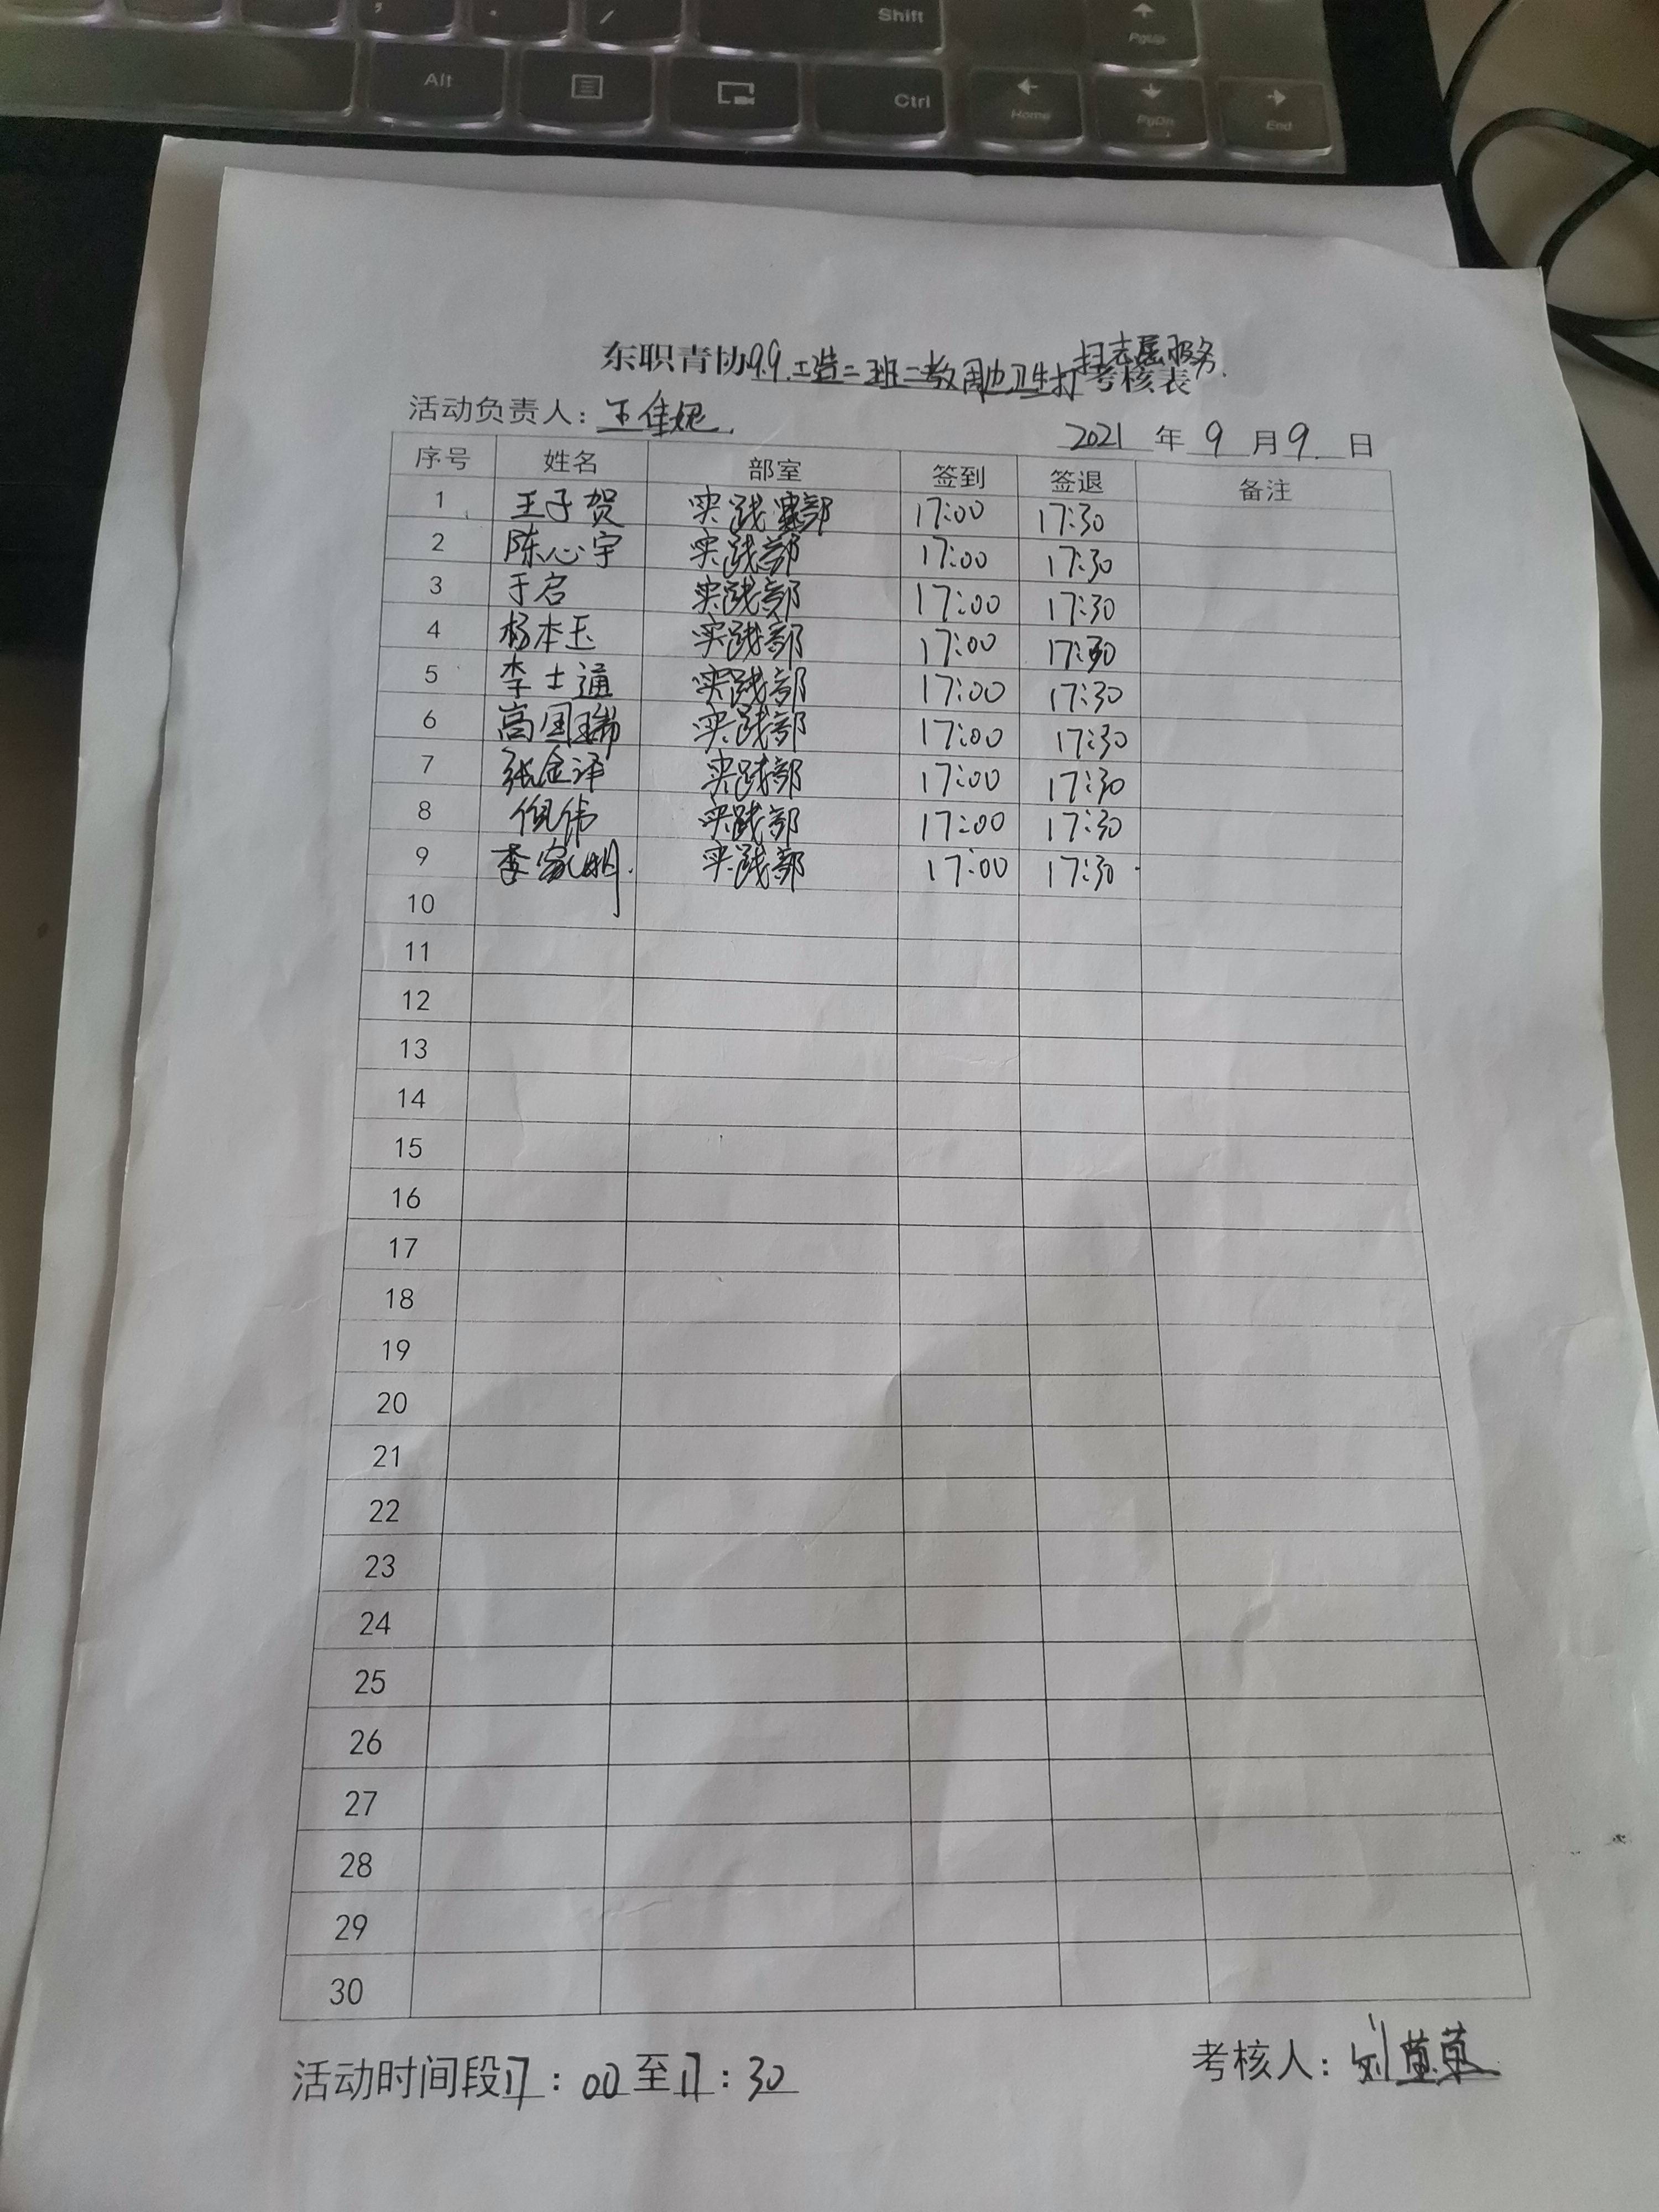 Shift
PgUp
Alt
Ctrl
Home
PgDn
End
东职青协9.9.工造二班二教周边卫生打扫志愿服务.考核表
活动负责人：王佳妮.
2021 年 9 月 9. 日
序号 姓名 部室 签到 签退 备注
1 王子贺 实践部 17:00 17:30
2 陈心宇 实践部 17:00 17:30
3 于启 实践部 17:00 17:30
4 杨本玉 实践部 17:00 17:30
5 李士通 实践部 17:00 17:30
6 高国瑞 实践部 17:00 17:30
7 张金译 实践部 17:00 17:30
8 倪伟 实践部 17:00 17:30
9 李家明. 实践部 17:00 17:30
10
11
12
13
14
15
16
17
18
19
20
21
22
23
24
25
26
27
28
29
30
活动时间段17：00至17：30
考核人：刘